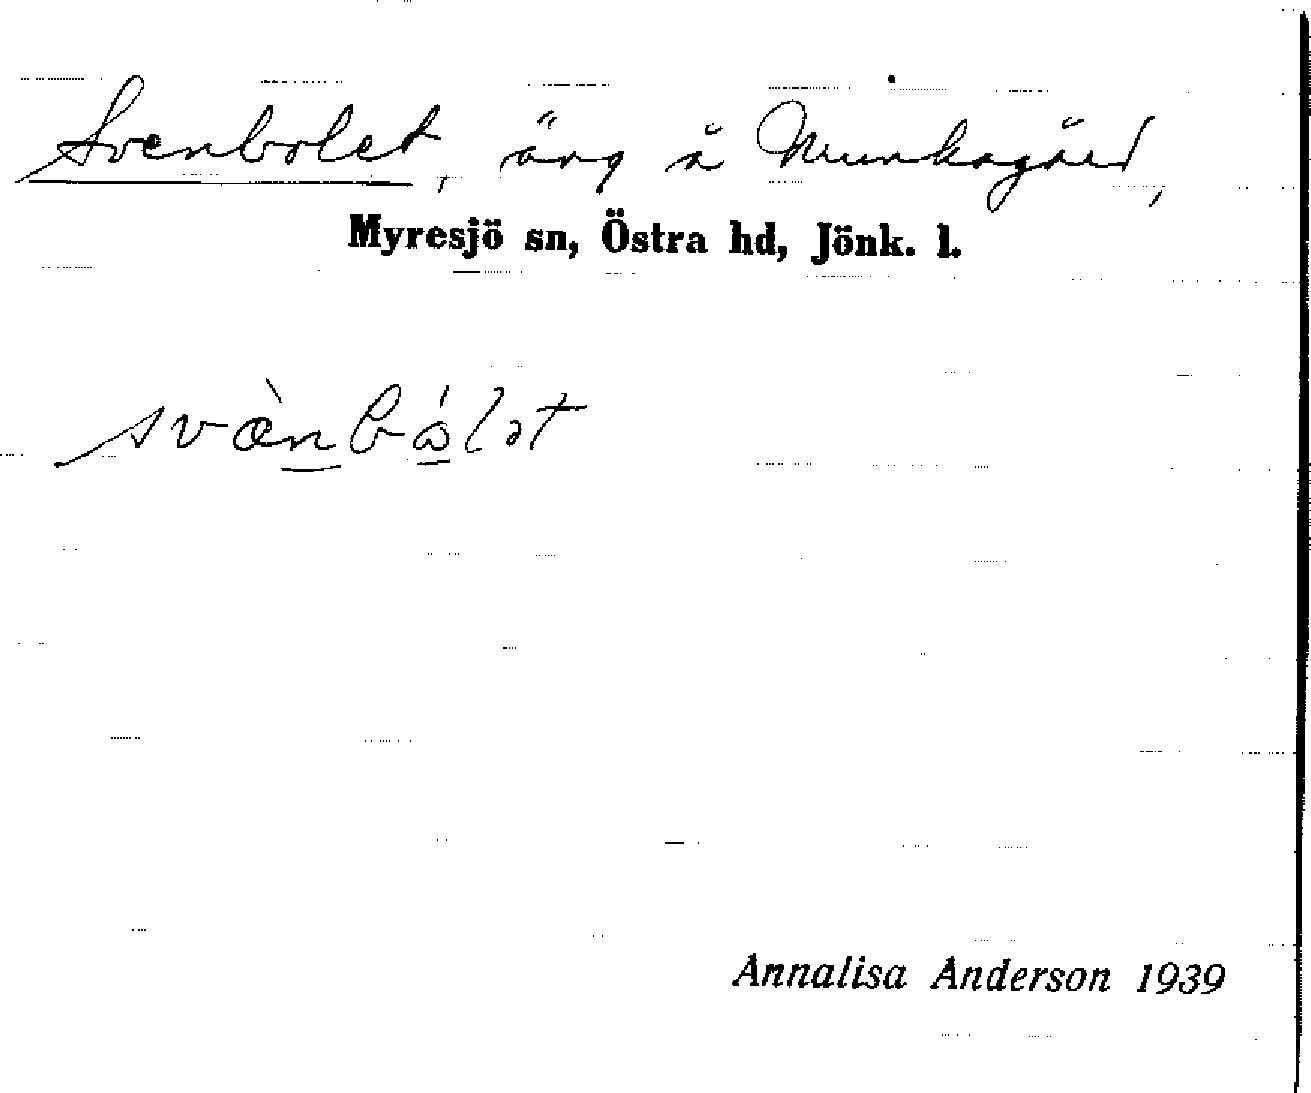 Svenbolet, äng å Munkagård,
Myresjö sn, Östra hd, Jönk. l.
svæ̀nbǻlət
Annalisa Anderson 1939